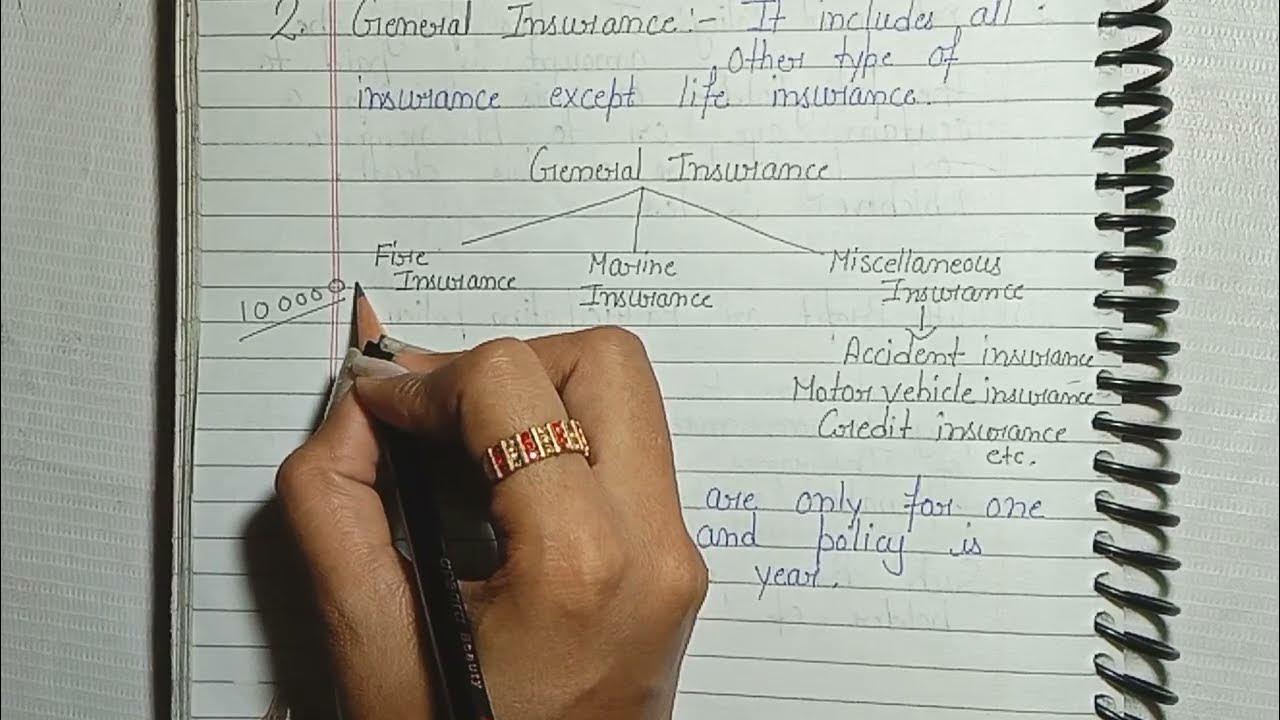 2. General Insurance:- It includes all
other type of
insurance except life insurance.
General Insurance
Fire
Insurance
Marine
Insurance
Miscellaneous
Insurance
10000
Accident insurance
Motor vehicle insurance
Credit insurance
etc.
are only for one
and policy is
year.